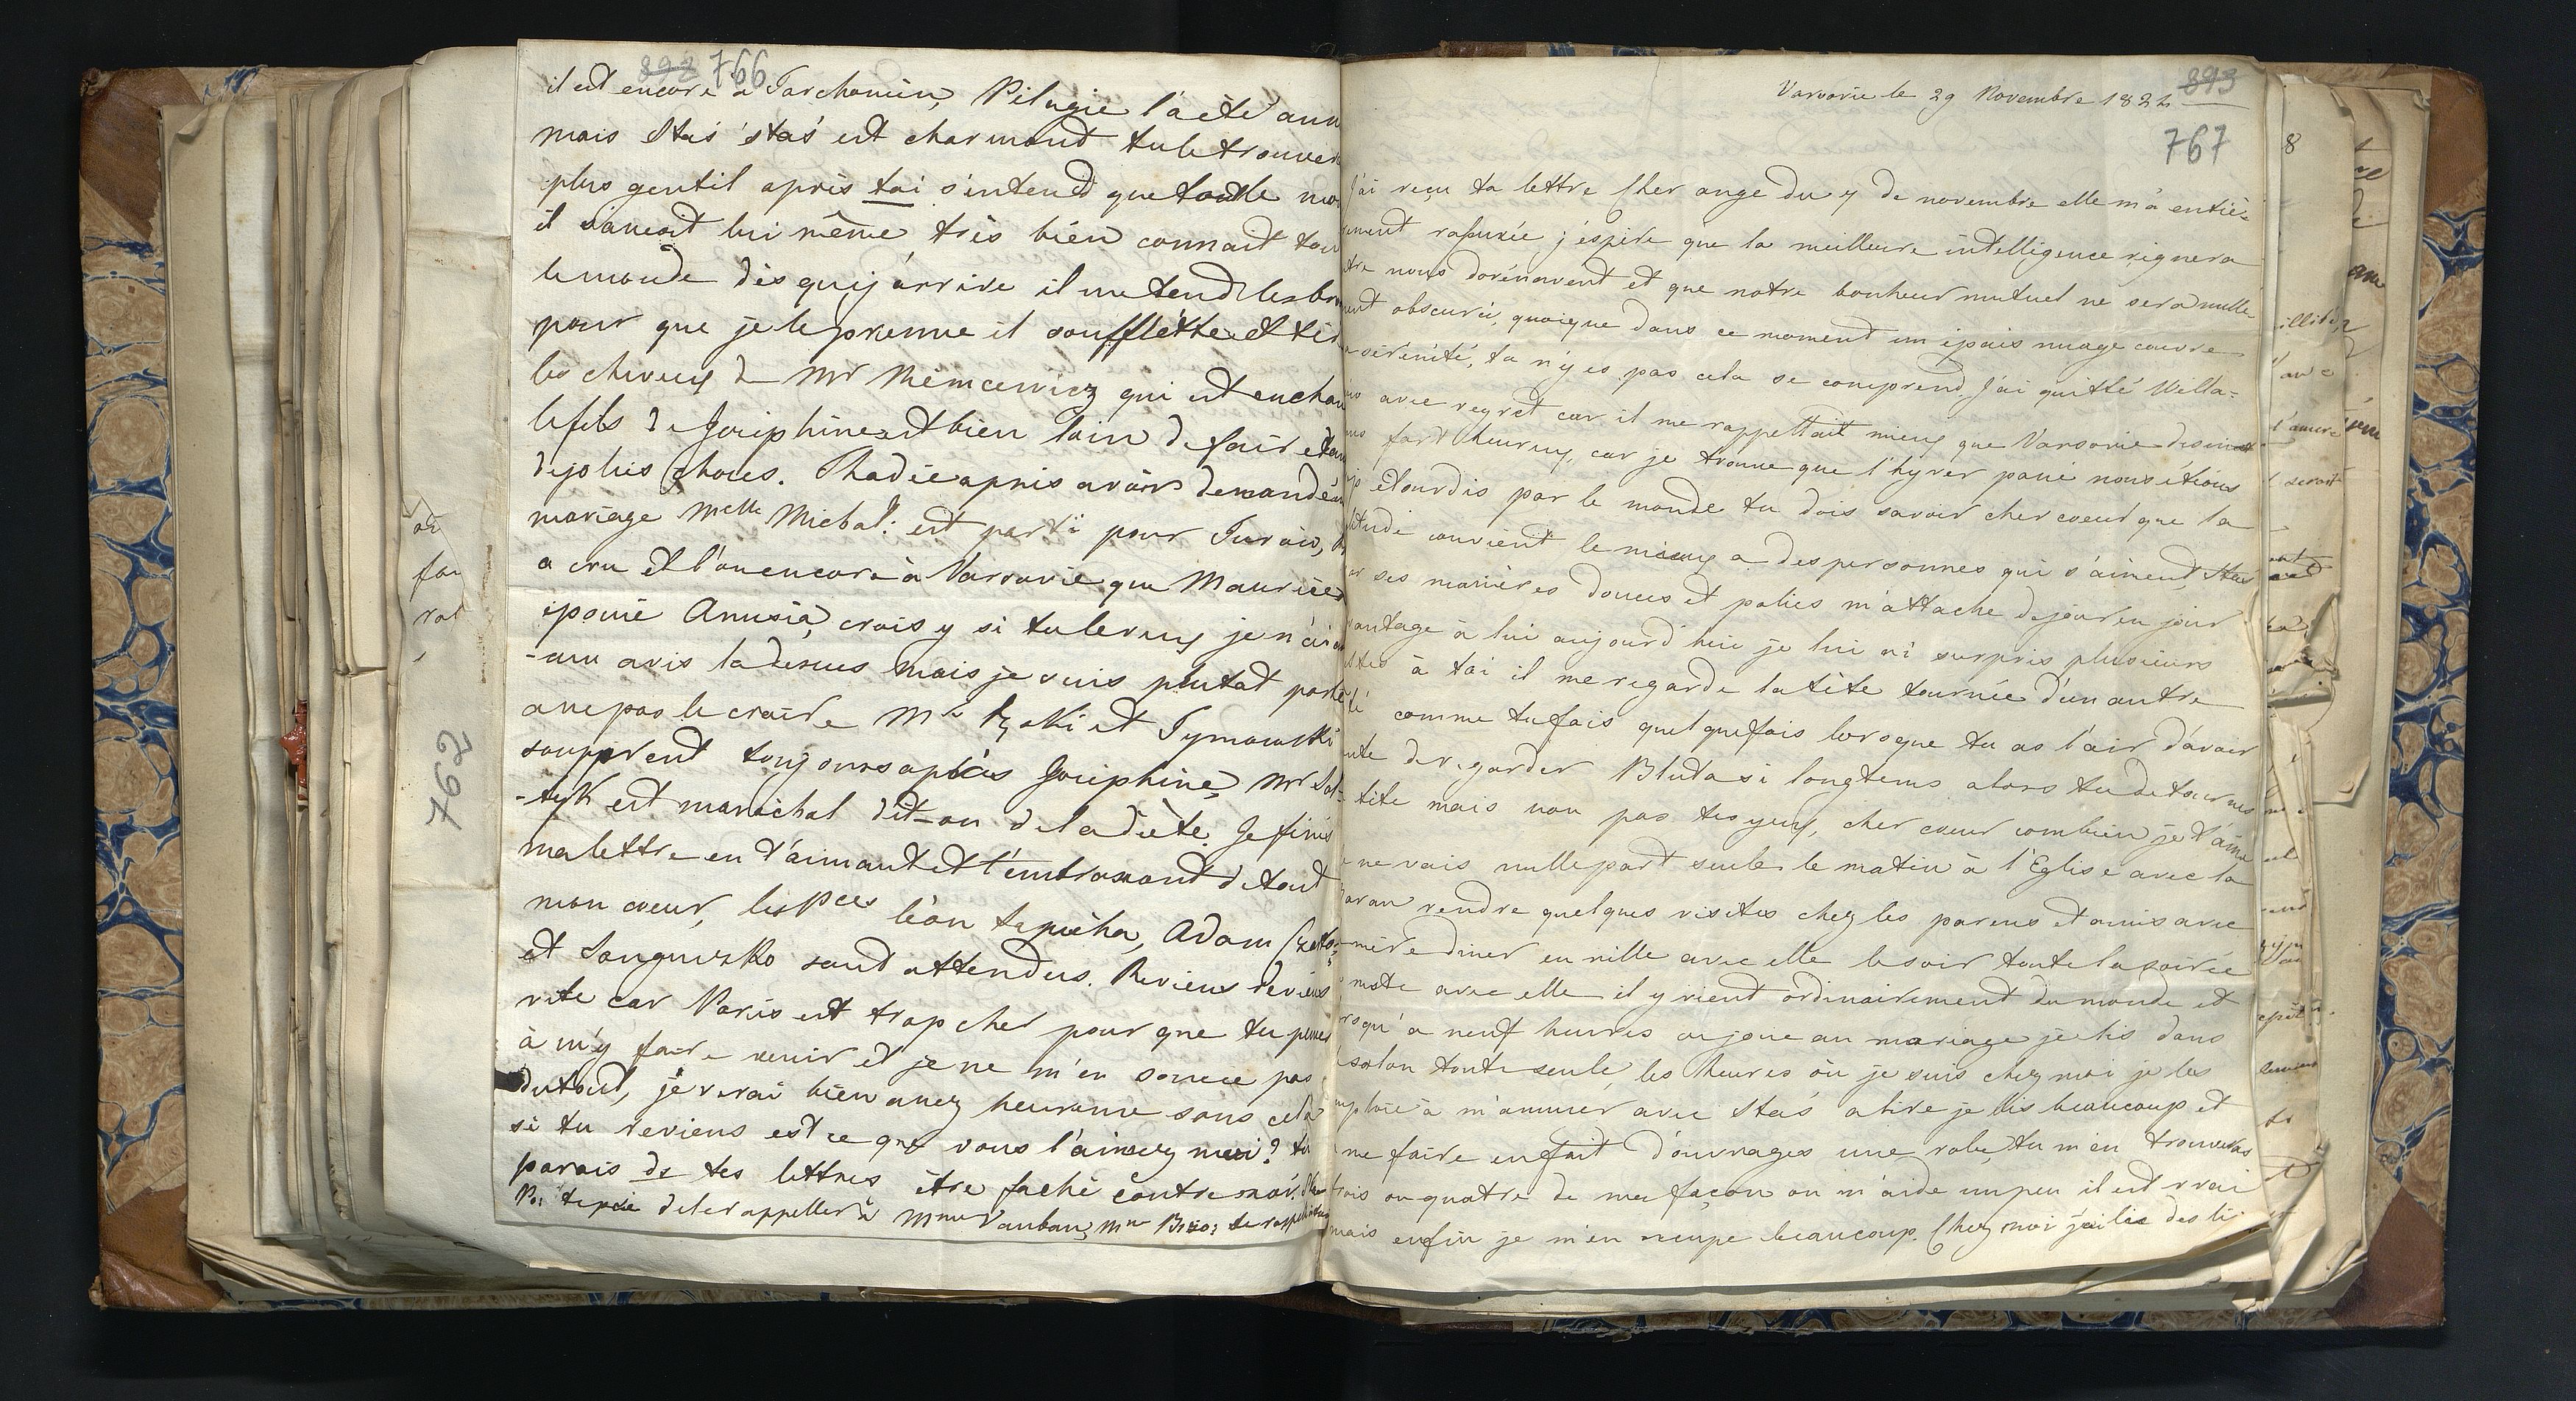 892 766
il est encore à Tarchomin, Pélagie l'a été aussi
mais Staś staś est charmant tu le trouver
plus gentil après toi s'entend que tout le mon
il s'assoit lui même très bien connait tou
le monde dès qu'ij'arrive il me tend les bra
pour que je le prenne il soufflette et tir
les cheveux de Mr Niemcewicz qui est enchan
le fils de Josephine est bien loin de faire
de jolies choses. Thadée après avoir demandé en
mariage Melle Michal: est parti pour Turau,
a cru et l'on encore à Varsovie que Maurice
épousé Anusia, crois y si tu le veux je n'ai
-cun avis la dessus mais je suis plutot porté
a ne pas le croire Mrs et Tymowski
soupirent toujours après Josephine, Mr Sol-
-tyk est maréchal dit-on de la diète. Je finis
ma lettre en t'aimant et t'embrassant de tout
mon coeur, les Pces léon Sapieha, Adam Czarto:
et Sanguszko sont attendus. Reviens reviens
vite car Paris est trop cher pour que tu penses
à m'y faire venir et je ne m'en soucie pas
dutout, je serai bien assez heureuse sans cela
si tu reviens est ce que vous l'aimez mui? tu
parais de tes lettres être faché contre moi.
de le rappeller à Mme Vauban, Mme
762
Varsovie le 29 Novembre 1822 893
767
J'ai reçu ta lettre Cher ange du 7 de novembre elle m'a entiè-
rement rassurée j'éspère que la meilleure intelligence règnera
tre nous dorénavent et que notre bonheur mutuel ne sera nulle-
ment obscurci, quoique dans ce moment un épais nuage couvre
sa sérénité, tu n'y es pas cela se comprend. J'ai quitté Willa-
avec regret car il me rappellait mieux que Varsovie
fort heureux, car je trouve que l'hyver passé nous étions
étourdis par le monde tu dois savoir cher coeur que la
litude convient le mieux a des personnes qui s'aiment, Staś
ar ses manières douces et polies m'attache de jour en jour
vantage à lui aujourd'hui je lui ai surpris plusieurs
à toi il me regarde la tête tournée d'un autre
té comme tu fais quelquefois lorsque tu as l'air d'avoir
nte de regarder Bluta si longtems alors tu detournes
tête mais non pas tes yeux, cher coeur combien je t'aime
e ne vais nullepart seule le matin à l'Eglise avec la
rendre quelques visites chez les parens et amis avec
mère diner en ville avec elle le soir toute la soirée
reste avec elle il y vient ordinairement du monde et
rsqu'a neuf heures on joue au mariage je lis dans
salon toute seule, les heures où je suis chez moi je les
mploie à m'amuser avec Staś a lire je lis beaucoup et
me faire en fait d'ouvrages une robe, tu m'en trouveras
trois ou quatre de ma façon on m'aide un peu il est vrai
mais enfin je m'en occupe beaucoup. Chez moi j'ai lis des li-
8